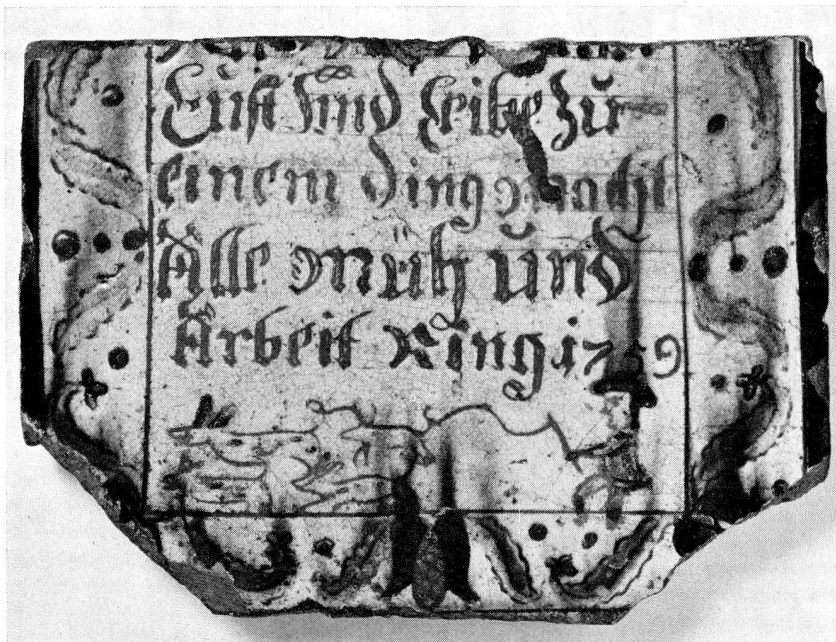 Lust und Leibe zu
einem ding macht
Alle müh und
Arbeit Ring 1759